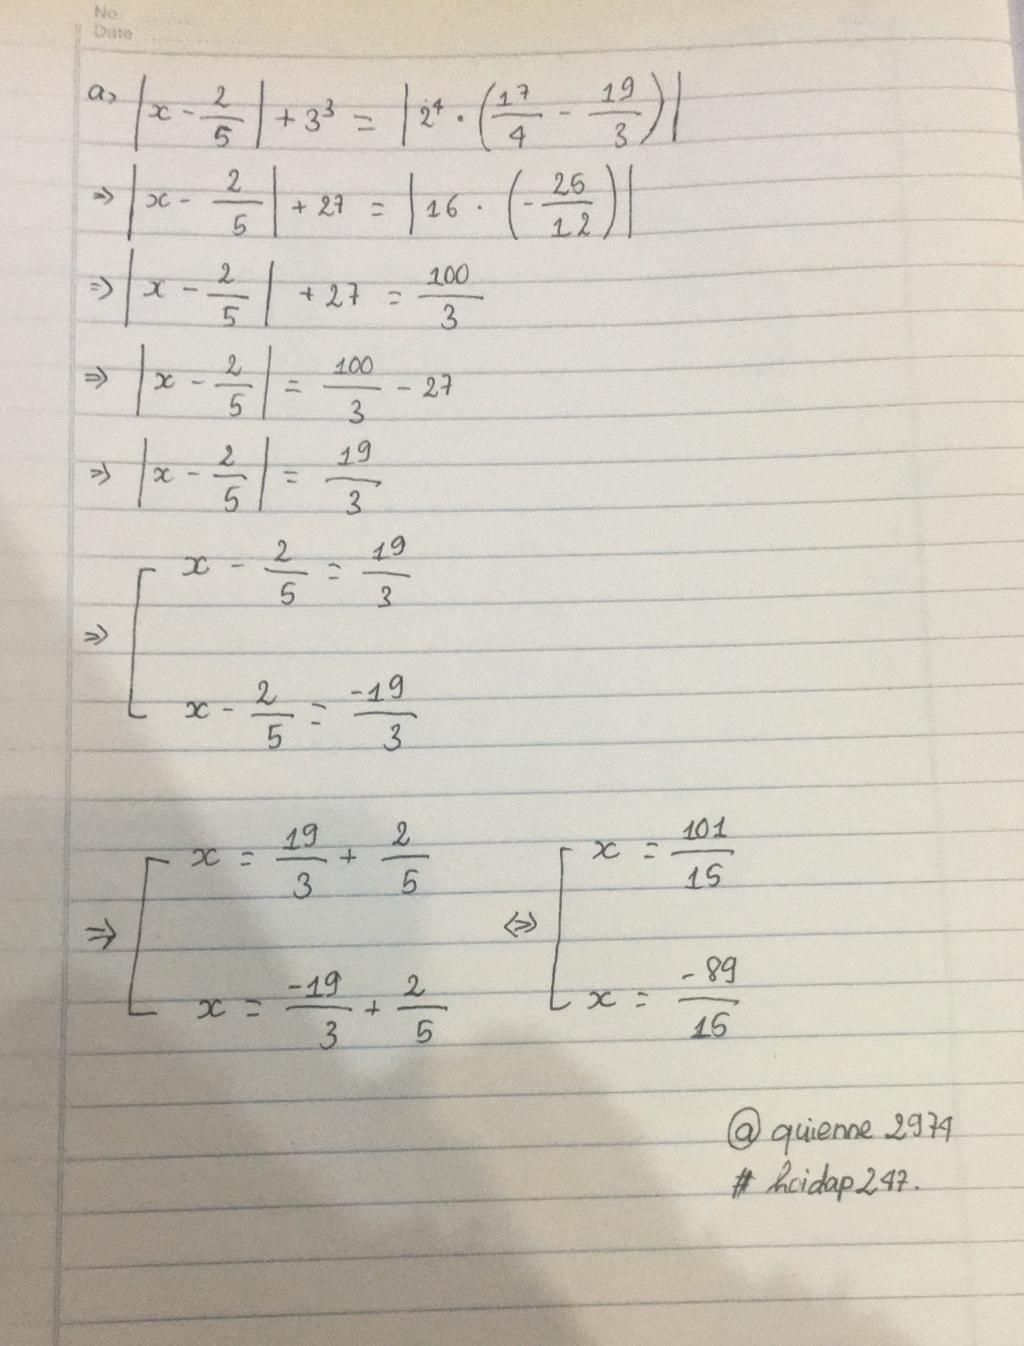 No.
Date
a, |x - 2/5| + 3³ = |2⁴ · (17/4 - 19/3)|
⇒ |x - 2/5| + 27 = |16 · (-25/12)|
⇒ |x - 2/5| + 27 = 100/3
⇒ |x - 2/5| = 100/3 - 27
⇒ |x - 2/5| = 19/3
⇒ [ x - 2/5 = 19/3
x - 2/5 = -19/3
⇒ [ x = 19/3 + 2/5 ⇔ [ x = 101/15
x = -19/3 + 2/5 x = -89/15
@quienne2974
#hoidap247.